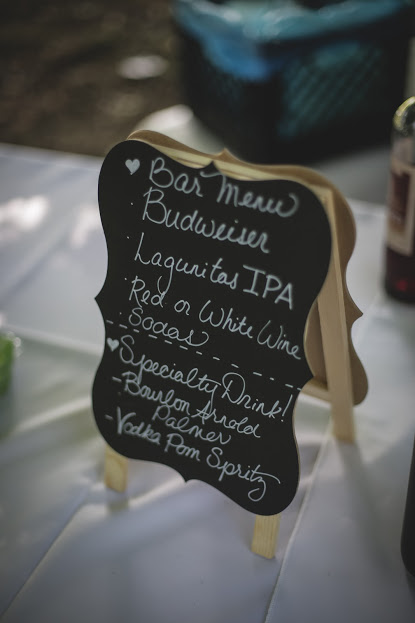 ♥ Bar Menu
· Budweiser
· Lagunitas IPA
· Red or White Wine
· Sodas
♥ Specialty Drink!
- Bourbon Arnold
Palmer
- Vodka Pom Spritz